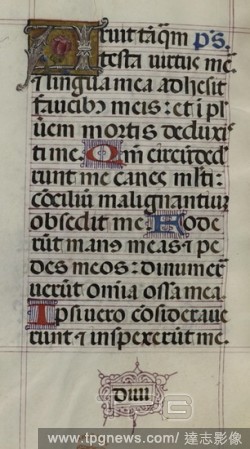 Aruit tāqm ps.
testa virtus me
⁊ lingua mea adhesit
faucibꝰ meis: et ī pl
uem mortis deduxi
ti me. Qm̄ circūded
runt me canes mlti:
cōciliū malignantiū
obsedit me. Fode
rūt manꝰ meas ⁊ pe
des meos: dinumer
uerūt omnia ossa mea.
Ipsi vero cōsiderave
runt ⁊ inspexerūt me.
www.tpgnews.com/ 達志影像